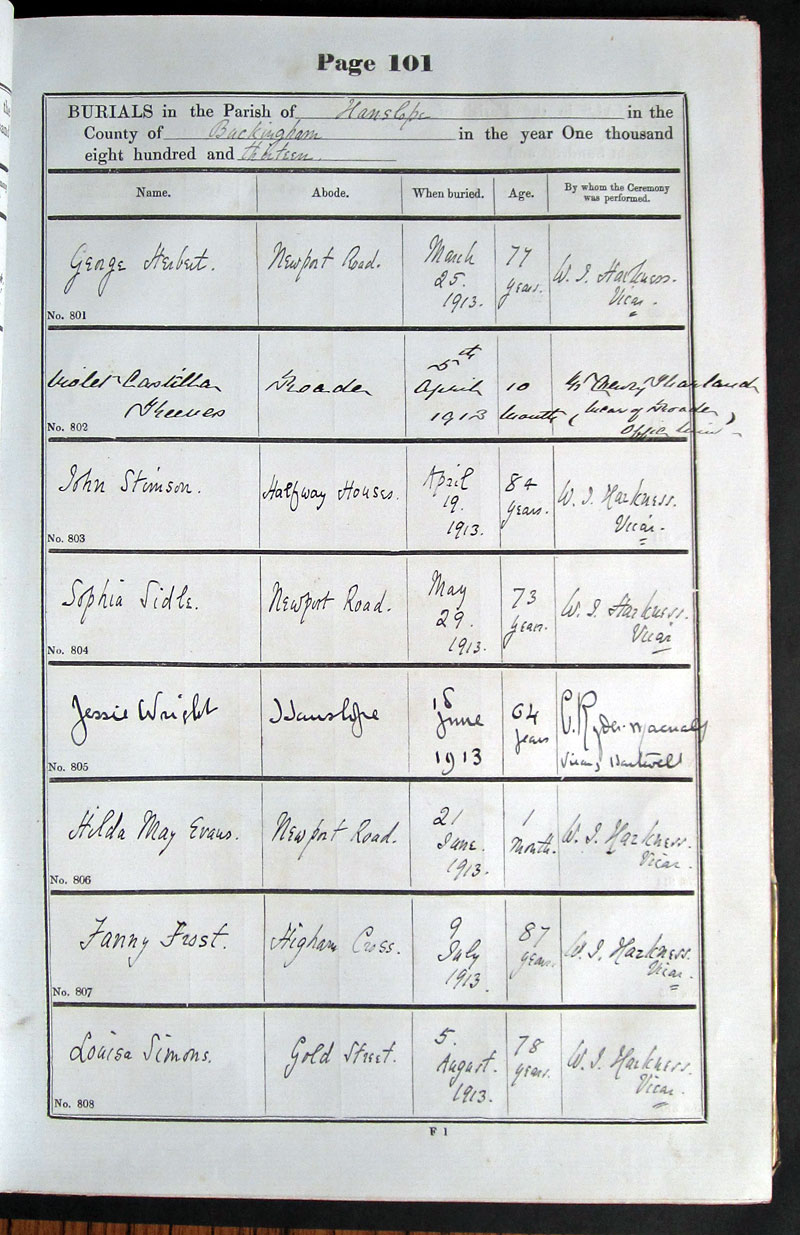 Page 101
BURIALS in the Parish of Hanslope in the
County of Buckingham in the year One thousand
eight hundred and thirteen.
Name. Abode. When buried. Age. By whom the Ceremony was performed.
George Herbert. Newport Road. March 77 W. J. Harkness.
25. years. Vicar.
1913.
No. 801
5th
Violet Castilla April 10
Reeves 1913 months (Vicar of
No. 802
John Stimson. Halfway Houses. April 84 W. J. Harkness.
19. years. Vicar.
1913.
No. 803
Sophia Sidle. Newport Road. May 73 W. J. Harkness.
29. years. Vicar
1913.
No. 804
Jessie Wright Hanslope June 64 C. Ryder
1913 years Vicar, Hartwell
No. 805
Hilda May Evans. Newport Road. 21 1 W. J. Harkness.
June. month. Vicar.
1913.
No. 806
Fanny Frost. Higham Cross. 9 87 W. J. Harkness.
July years. Vicar.
1913.
No. 807
Louisa Simons. Gold Street. 5. 78 W. J. Harkness.
August. years. Vicar.
1913.
No. 808
F 1